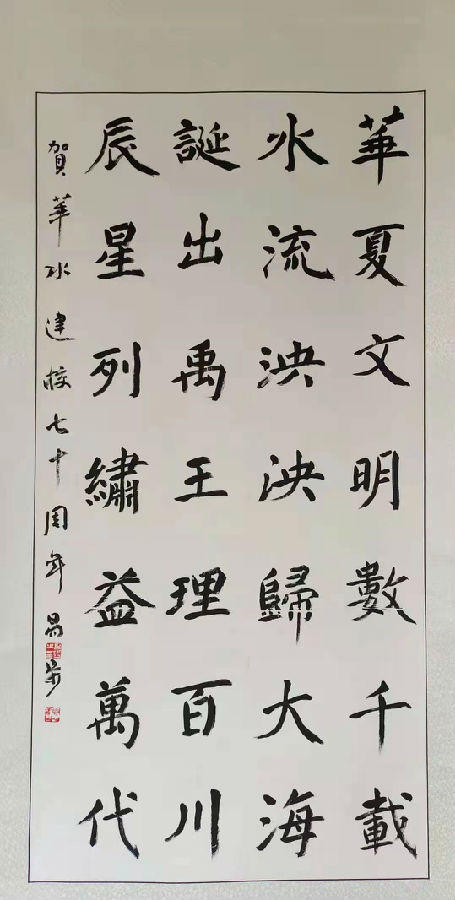 華夏文明數千載
水流泱泱歸大海
誕出禹王理百川
辰星列繡益萬代
賀華水建校七十周年 昌步